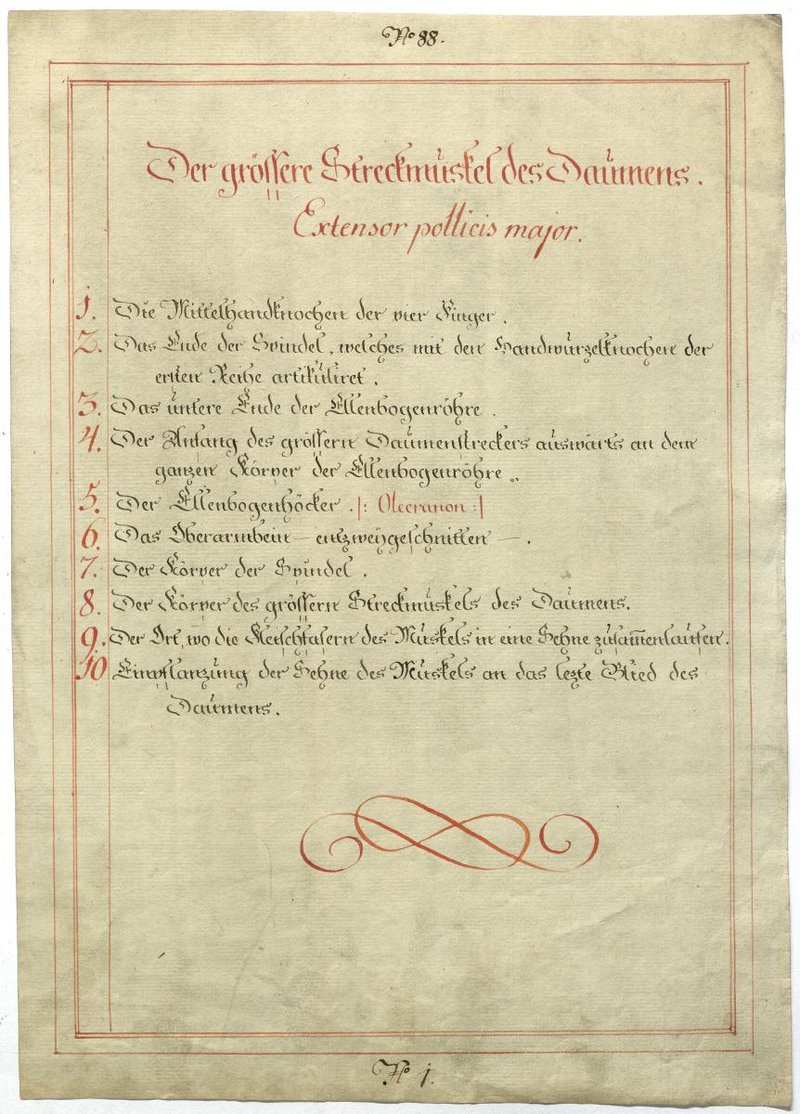 No 88.
Der grössere Streckmuskel des Daumens.
Extensor pollicis major.
1. Die Mittelhandknochen der vier Finger.
2. Das Ende der Spindel, welches mit den Handwurzelknochen der
ersten Reihe artikuliret.
3. Das untere Ende der Ellenbogenröhre.
4. Der Anfang des grössern Daumenstreckers auswärts an dem
ganzen Körper der Ellenbogenröhre.
5. Der Ellenbogenhöcker. |: Olecranon :|
6. Das Oberarmbein — entzweygeschnitten —.
7. Der Körper der Spindel.
8. Der Körper des grössern Streckmuskels des Daumens.
9. Der Ort, wo die Fleischfasern des Muskels in eine Sehne zusam̅enlaufen.
10 Einpflanzung der Sehne des Muskels an das lezte Glied des
Daumens.
No 1.